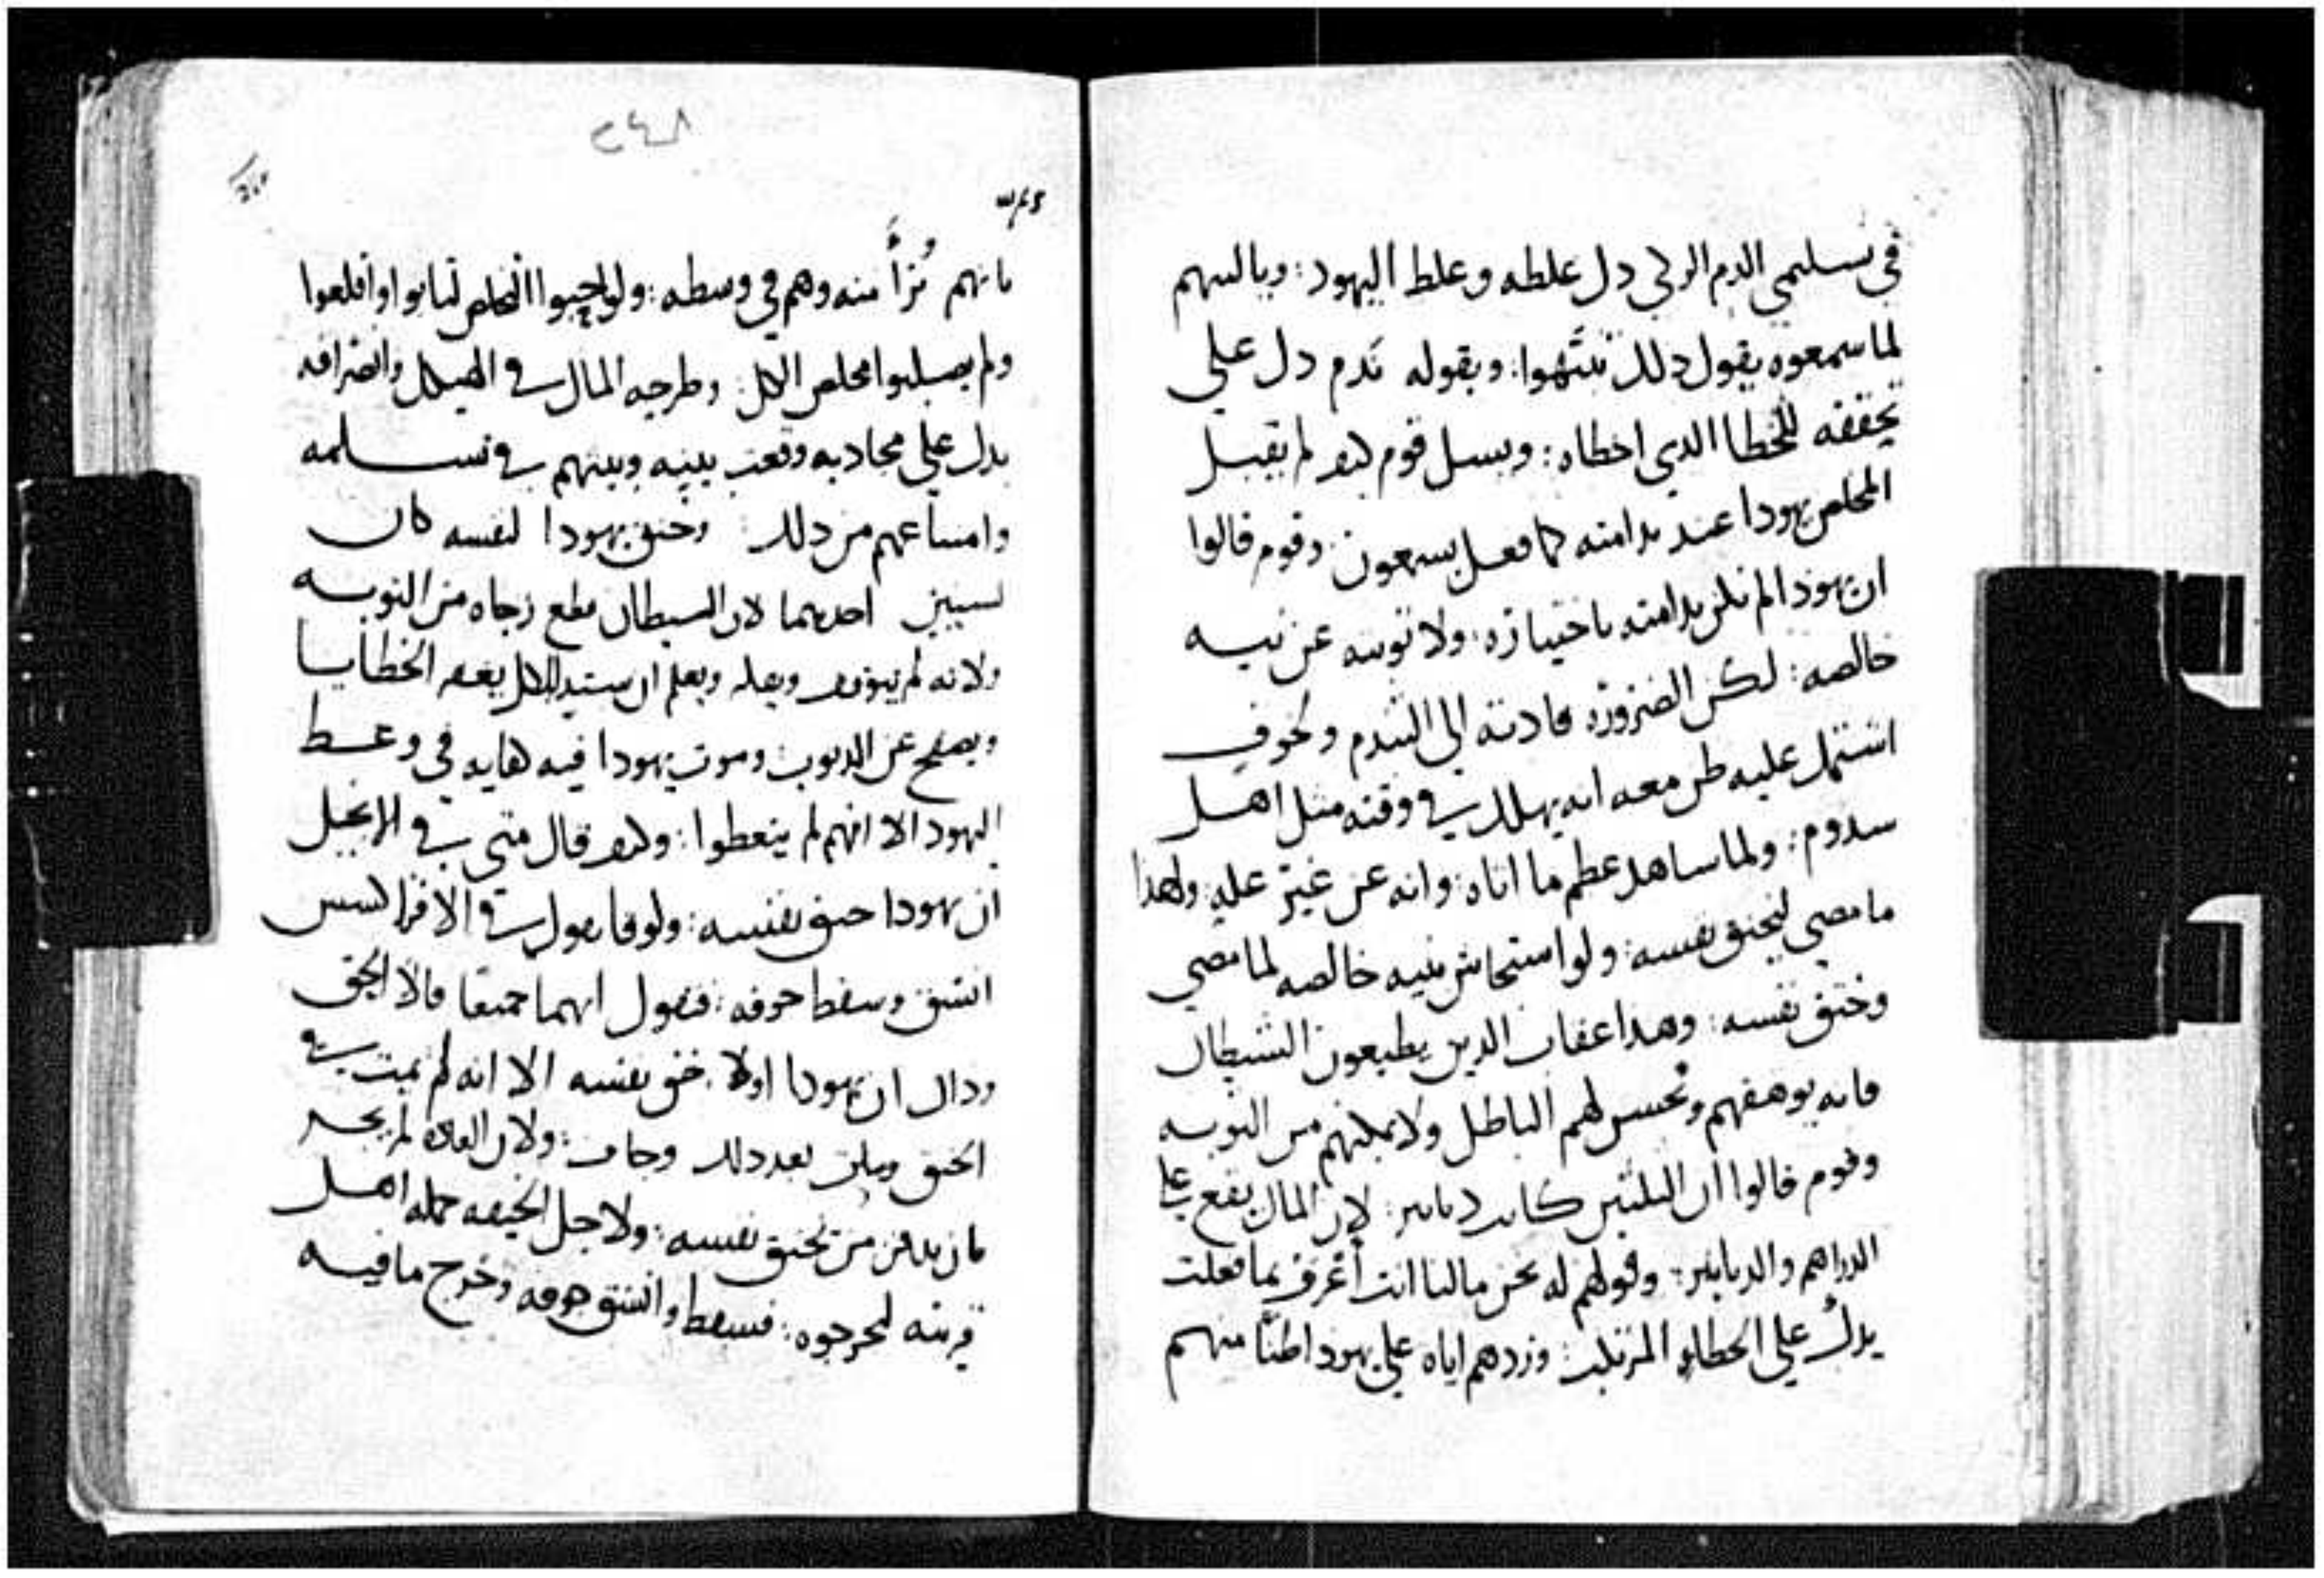 في تسليمي الدم الزكي دل غلطه وغلط اليهود: وياليتهم
لما سمعوه يقول دلك تنبّهوا: وبقوله ندم دل على
تحققه للخطا الدي اخطاه: ويسل قوم كيف لم يقبل
المخلص يهودا عند ندامته كما فعل بسمعون: وقوم قالوا
ان يهودا لم تكن ندامته باختياره: ولا توبته عن نيه
خالصه: لكن الضروره قادته الى التندم ولخوف
اشتمل عليه ظن معه انه يهلك في وقته مثل اهل
سدوم: ولما ساهد عظم ما اتاه: وانه عن غير عليه: ولهذا
ما مضى ليخنق نفسه: ولو استجاش بنيه خالصه لما مضى
وخنق نفسه: وهدا عقاب الدين يطيعون الشيطان
فانه يوهقهم ويحسن لهم الباطل ولا يمكنهم من التوبه
وقوم قالوا ان التلتين كانت دنانير: لان المال يقع على
الدراهم والدنانير: وقولهم له نحن مالنا انت أعرف بما فعلت
يدل على الخطاء المرتكب: وردهم اياه على يهودا ظنًّا منهم
٢٤٨
بانهم بُرأً منه وهم في وسطه: ولو احبوا التخلص لتابوا واقلعوا
ولم يصلبوا مخلص الكل: وطرحه المال في الهيكل وانصرافه
يدل على مجادبه وقعت بينه وبينهم في تسلمه
وامتناعهم من دلك: وخنق يهودا لنفسه كان
لسببين احدهما لان الشيطان قطع رجاه من التوبه
ولانه لم يتوقف ويعلم ان سيد الكل يغفر الخطايا
ويصفح عن الدنوب: وموت يهودا فيه كفايه في وعظ
اليهود الا انهم لم يتعظوا: وكيف قال متى في الانجيل
ان يهودا خنق نفسه: ولوقا يقول في الافراكسس
انشق وسقط جوفه: فنقول انهما جميعا قالا الحق
وداك ان يهودا اولا خنق نفسه الا انه لم يمت في
الخنق ومات بعد دلك وجاف: ولان العاده لم تجر
بان يدفن من يخنق نفسه: ولاجل الجيفه حمله اهل
قريته ليخرجوه: فسقط وانشق جوفه وخرج ما فيه